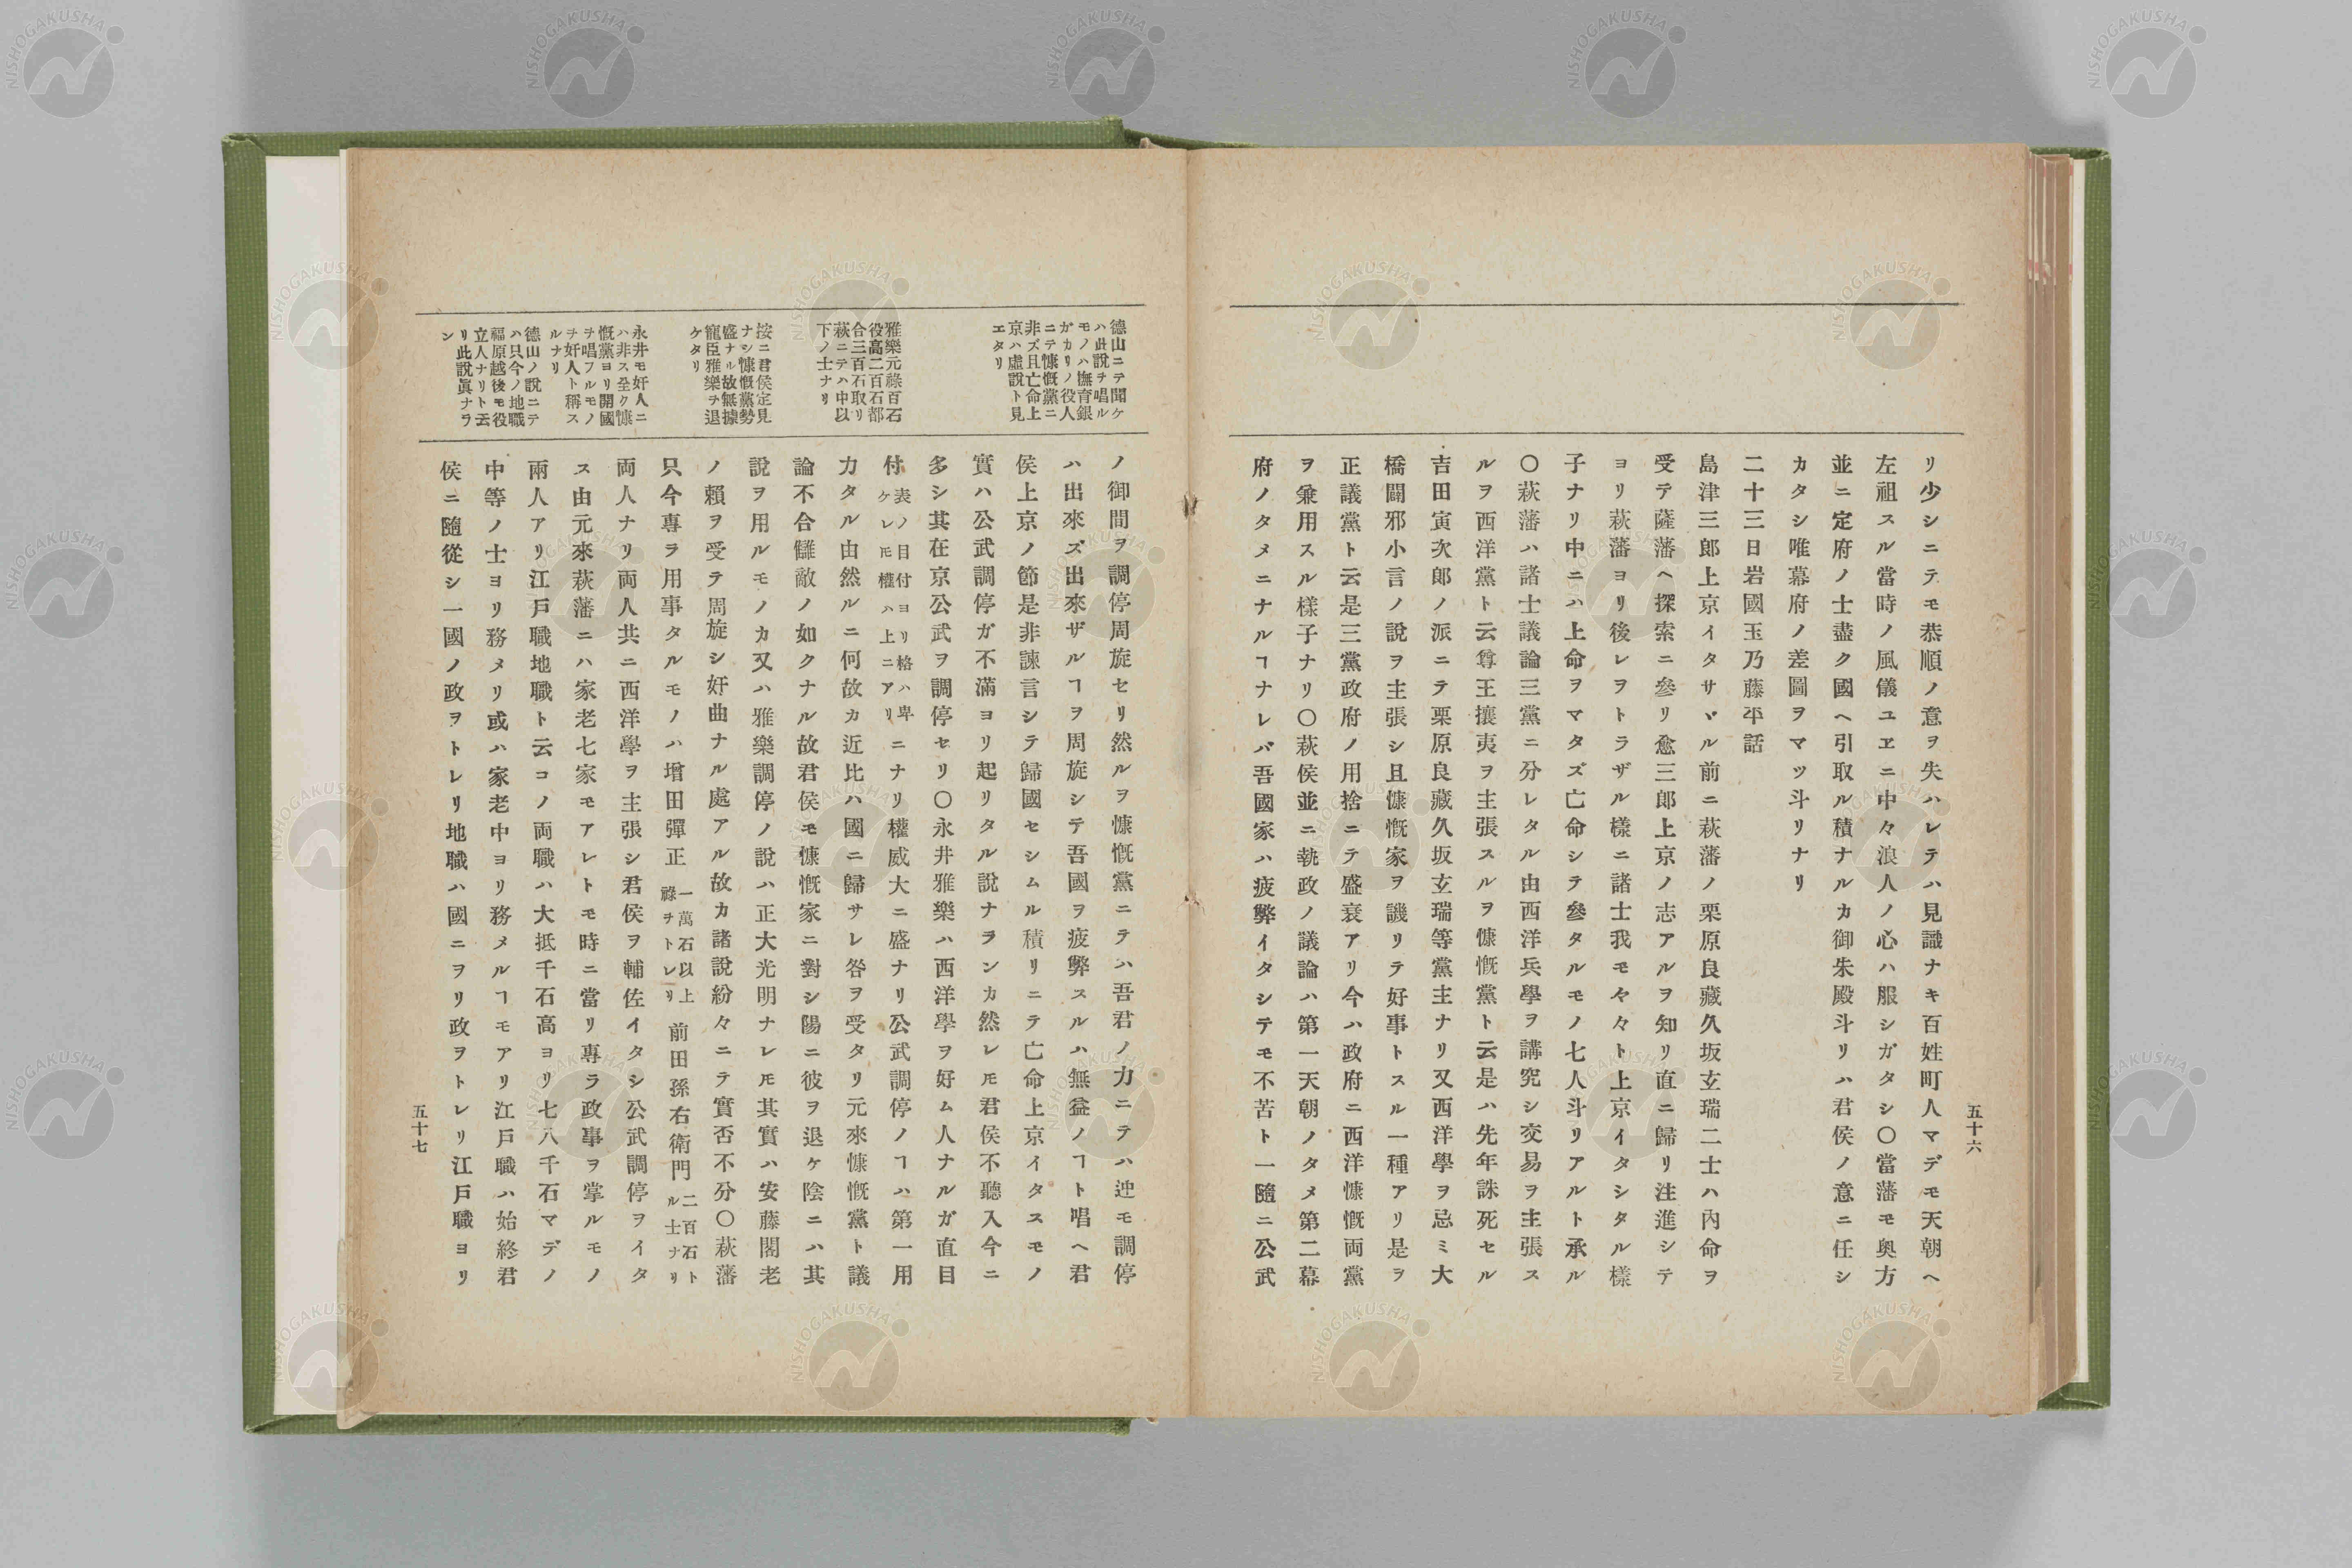 五十六
リ少シニテモ恭順ノ意ヲ失ハレテハ見識ナキ百姓町人マデモ天朝ヘ
左祖スル當時ノ風儀ユヱニ中々浪人ノ心ハ服シガタシ〇當藩モ奥方
並ニ定府ノ士盡ク國ヘ引取ル積ナルカ御朱殿斗リハ君侯ノ意ニ任シ
カタシ唯幕府ノ差圖ヲマツ斗リナリ
二十三日岩國玉乃藤平話
島津三郎上京イタサヾル前ニ萩藩ノ栗原良藏久坂玄瑞二士ハ內命ヲ
受テ薩藩ヘ探索ニ參リ愈三郎上京ノ志アルヲ知リ直ニ歸リ注進シテ
ヨリ萩藩ヨリ後レヲトラザル樣ニ諸士我モ々々ト上京イタシタル樣
子ナリ中ニハ上命ヲマタズ亡命シテ參タルモノ七人斗リアルト承ル
〇萩藩ハ諸士議論三黨ニ分レタル由西洋兵學ヲ講究シ交易ヲ主張ス
ルヲ西洋黨ト云尊王攘夷ヲ主張スルヲ慷慨黨ト云是ハ先年誅死セル
吉田寅次郎ノ派ニテ栗原良藏久坂玄瑞等黨主ナリ又西洋學ヲ忌ミ大
橋闢邪小言ノ說ヲ主張シ且慷慨家ヲ譏リテ好事トスル一種アリ是ヲ
正議黨ト云是三黨政府ノ用捨ニテ盛衰アリ今ハ政府ニ西洋慷慨両黨
ヲ兼用スル樣子ナリ〇萩侯並ニ執政ノ議論ハ第一天朝ノタメ第二幕
府ノタメニナルヿナレバ吾國家ハ疲弊イタシテモ不苦ト一隨ニ公武
德山ニテ聞ケ
ハ此說ヲ唱ル
モノハ撫育銀
ガカリノ役人
ニテ慷慨黨ニ
非ズ且亡命上
京ハ虛說ト見
エタリ
雅樂元祿百石
役高二百石都
合三百石取リ
萩ニテハ中以
下ノ士ナリ
按ニ君侯定見
ナシ慷慨黨勢
盛ナル故無據
寵臣雅樂ヲ退
ケタリ
永井モ奸人ニ
ハ非ス全ク慷
慨黨ヨリ開國
ヲ唱フルモノ
ヲ奸人ト稱ス
ルナリ
德山ノ說ニテ
ハ只今ノ地職
福原越後モ役
立人ナリト云
リ此說眞ナラ
ン
ノ御間ヲ調停周旋セリ然ルヲ慷慨黨ニテハ吾君ノ力ニテハ迚モ調停
ハ出來ズ出來ザルヿヲ周旋シテ吾國ヲ疲弊スルハ無益ノヿト唱ヘ君
侯上京ノ節是非諫言シテ歸國セシムル積リニテ亡命上京イタスモノ
實ハ公武調停ガ不滿ヨリ起リタル說ナランカ然レ𪜈君侯不聽入今ニ
多シ其在京公武ヲ調停セリ〇永井雅樂ハ西洋學ヲ好ム人ナルガ直目
付表ノ目付ヨリ格ハ卑ケレ𪜈權ハ上ニアリニナリ權威大ニ盛ナリ公武調停ノヿハ第一用
力タル由然ルニ何故カ近比ハ國ニ歸サレ咎ヲ受タリ元來慷慨黨ト議
論不合讎敵ノ如クナル故君侯モ慷慨家ニ對シ陽ニ彼ヲ退ケ陰ニハ其
說ヲ用ルモノカ又ハ雅樂調停ノ說ハ正大光明ナレ𪜈其實ハ安藤閣老
ノ賴ヲ受テ周旋シ奸曲ナル處アル故カ諸說紛々ニテ實否不分〇萩藩
只今專ラ用事タルモノハ增田彈正一萬石以上祿ヲトレリ前田孫右衛門二百石トル士ナリ
両人ナリ両人共ニ西洋學ヲ主張シ君侯ヲ輔佐イタシ公武調停ヲイタ
ス由元來萩藩ニハ家老七家モアレトモ時ニ當リ專ラ政事ヲ掌ルモノ
兩人アリ江戶職地職ト云コノ両職ハ大抵千石高ヨリ七八千石マデノ
中等ノ士ヨリ務メリ或ハ家老中ヨリ務メルヿモアリ江戶職ハ始終君
侯ニ隨從シ一國ノ政ヲトレリ地職ハ國ニヲリ政ヲトレリ江戶職ヨリ
五十七